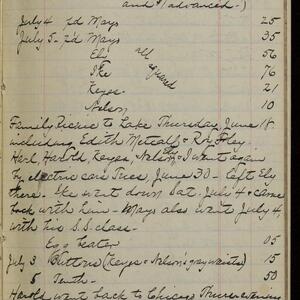 and advanced.)
July 4 pd Mays 25
July 5 - pd Mays 35
Ely all 56
Ike squared 76
Keyes 21
Nelson 10
Family Picnic to Lake Thursday, June 18
including Edith Metcalf &
Harl, Harold, Keyes, Nelson, Ely & I went again
by electric cars Tues, June 30 - left Ely
there. Ike went down Sat. July 4 & came
back with him - Mays also went July 4
with his S.S. class -
Egg beater 05
July 3 Buttons (Keyes & Nelson's gray waists) 15
5 Tenth - 50
Harold went back to Chicago Thurs. evening